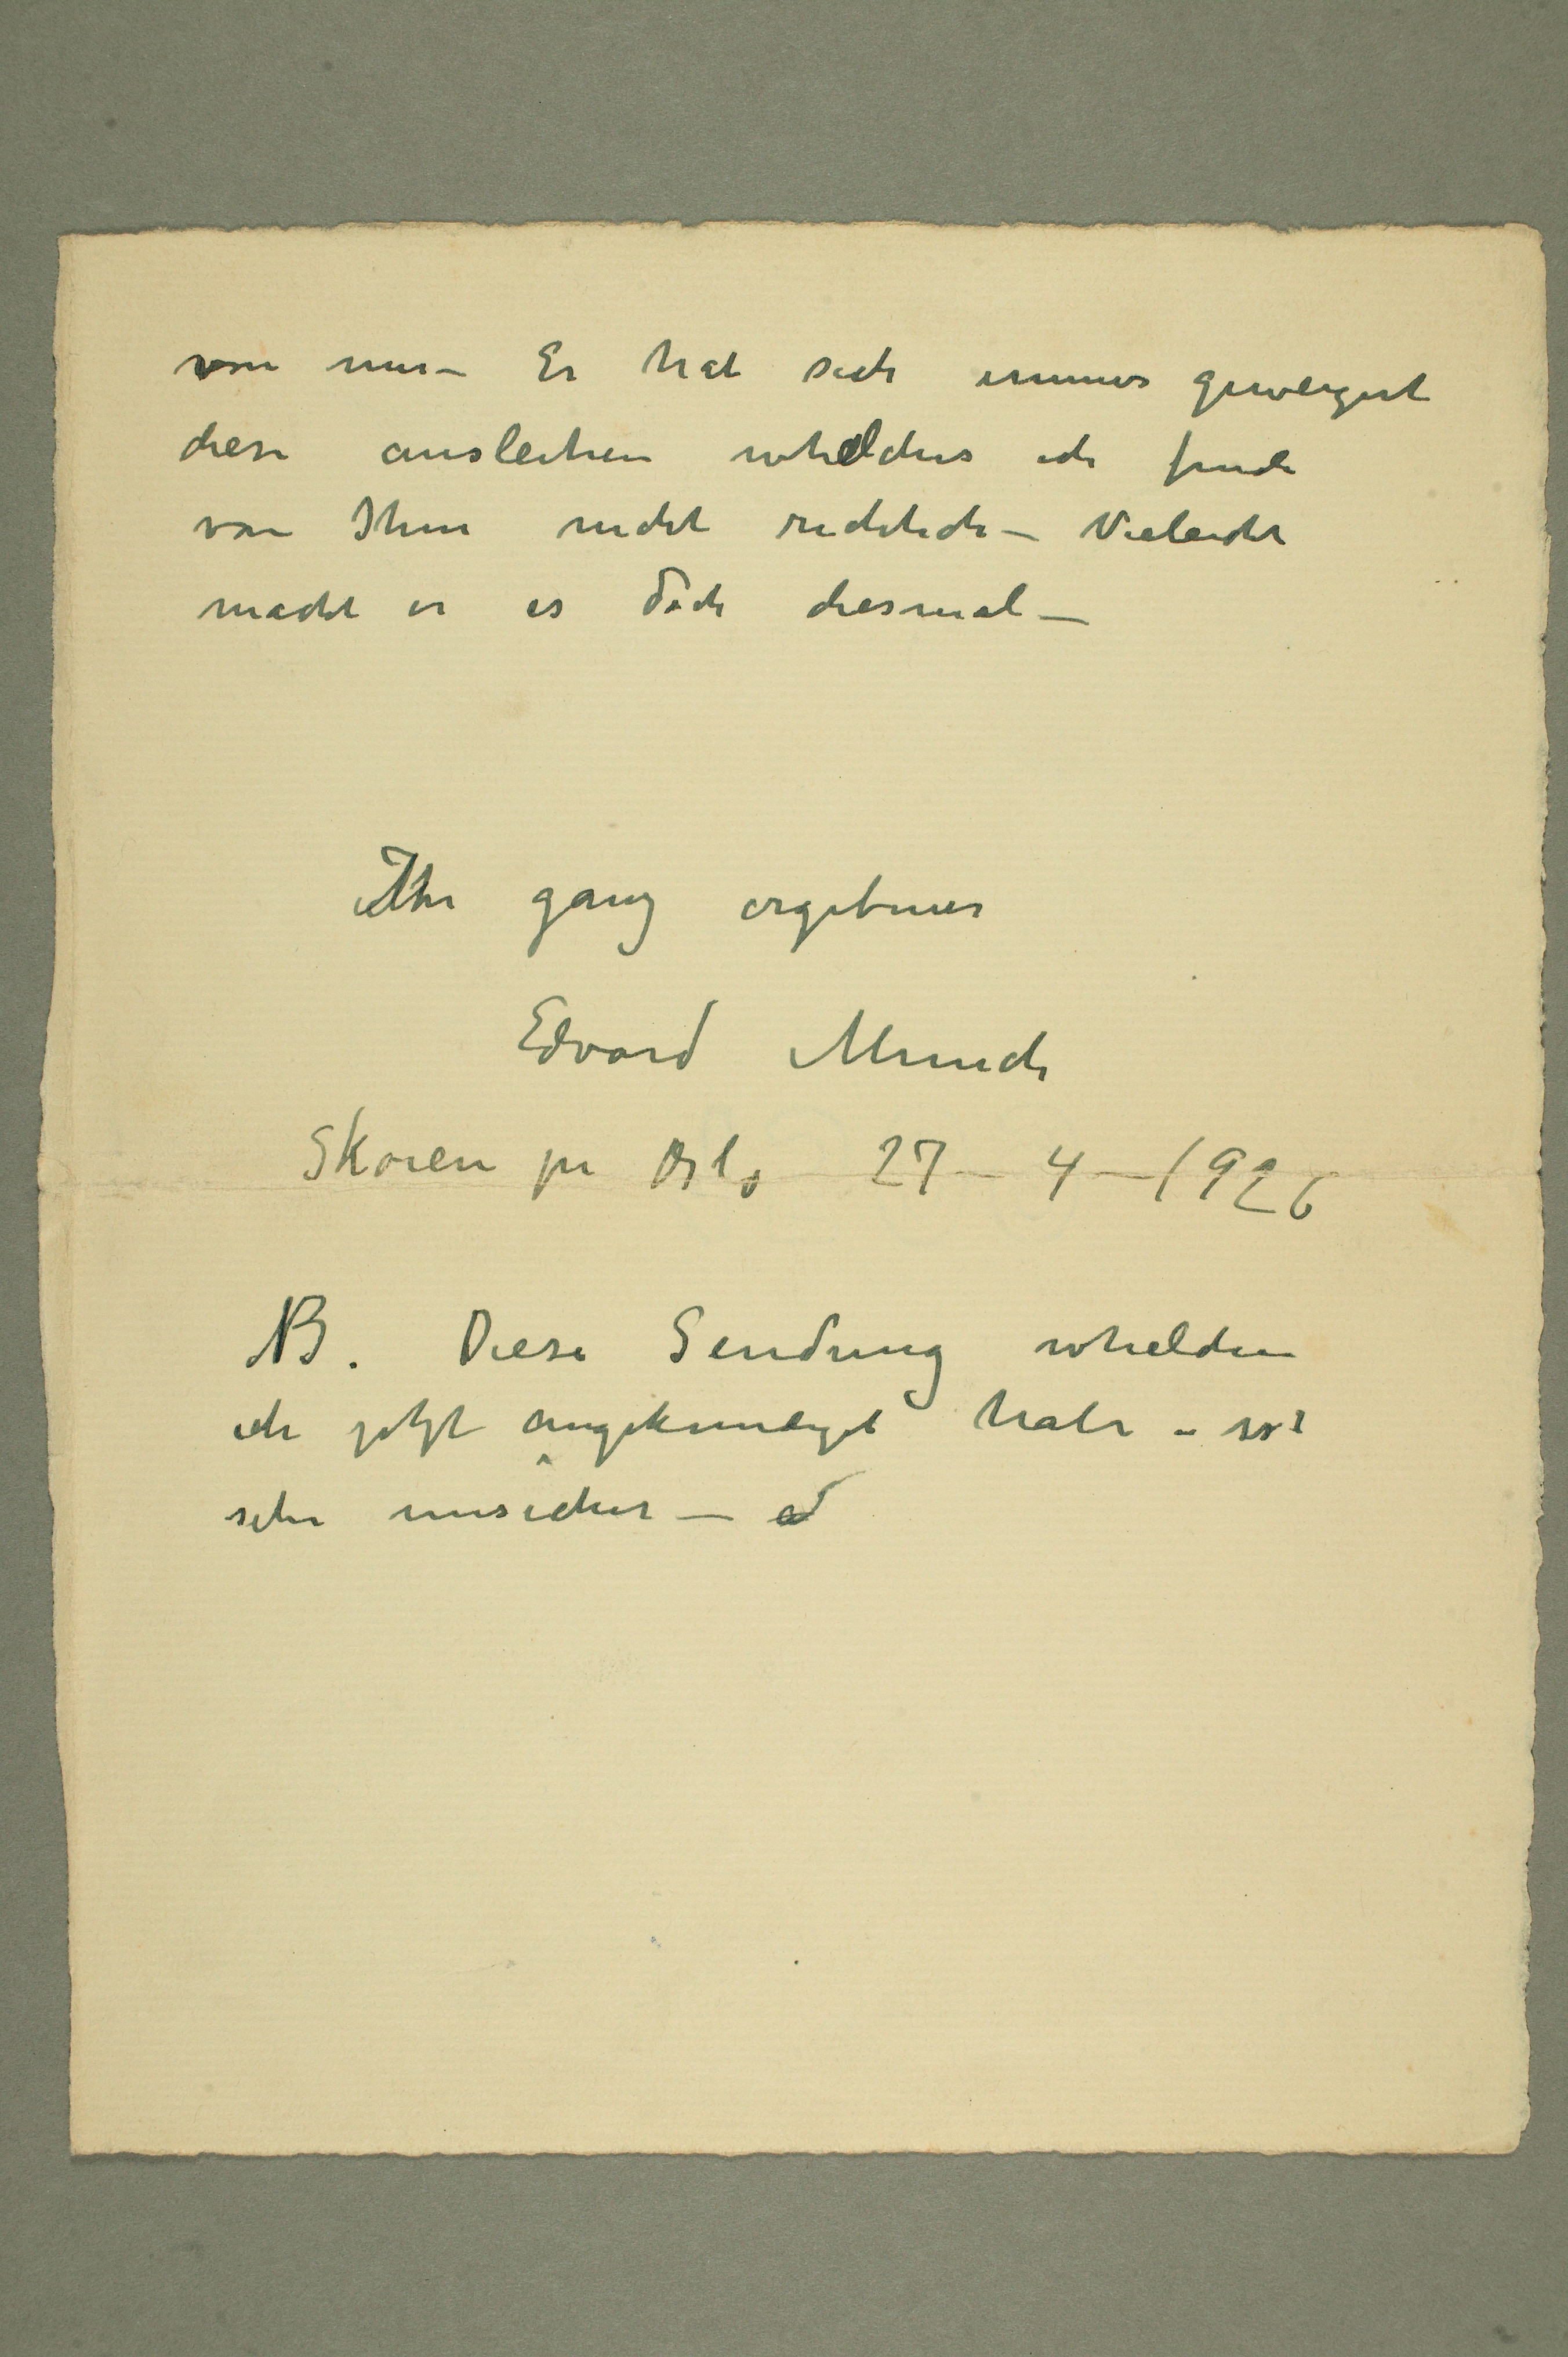 von mir – Er hat sich immer geweigert
diese ausleihen whelches ich finde
von Ihm nicht richtich – Vieleicht
macht er es doch diesmal –
Ihr ganz ergebener
Edvard Munch
Skøien pr Oslo 27 – 4 – 1926
NB. Diese Sendung whelchen
ich jetzt angekundigt habe – ist
sehr unsicher –